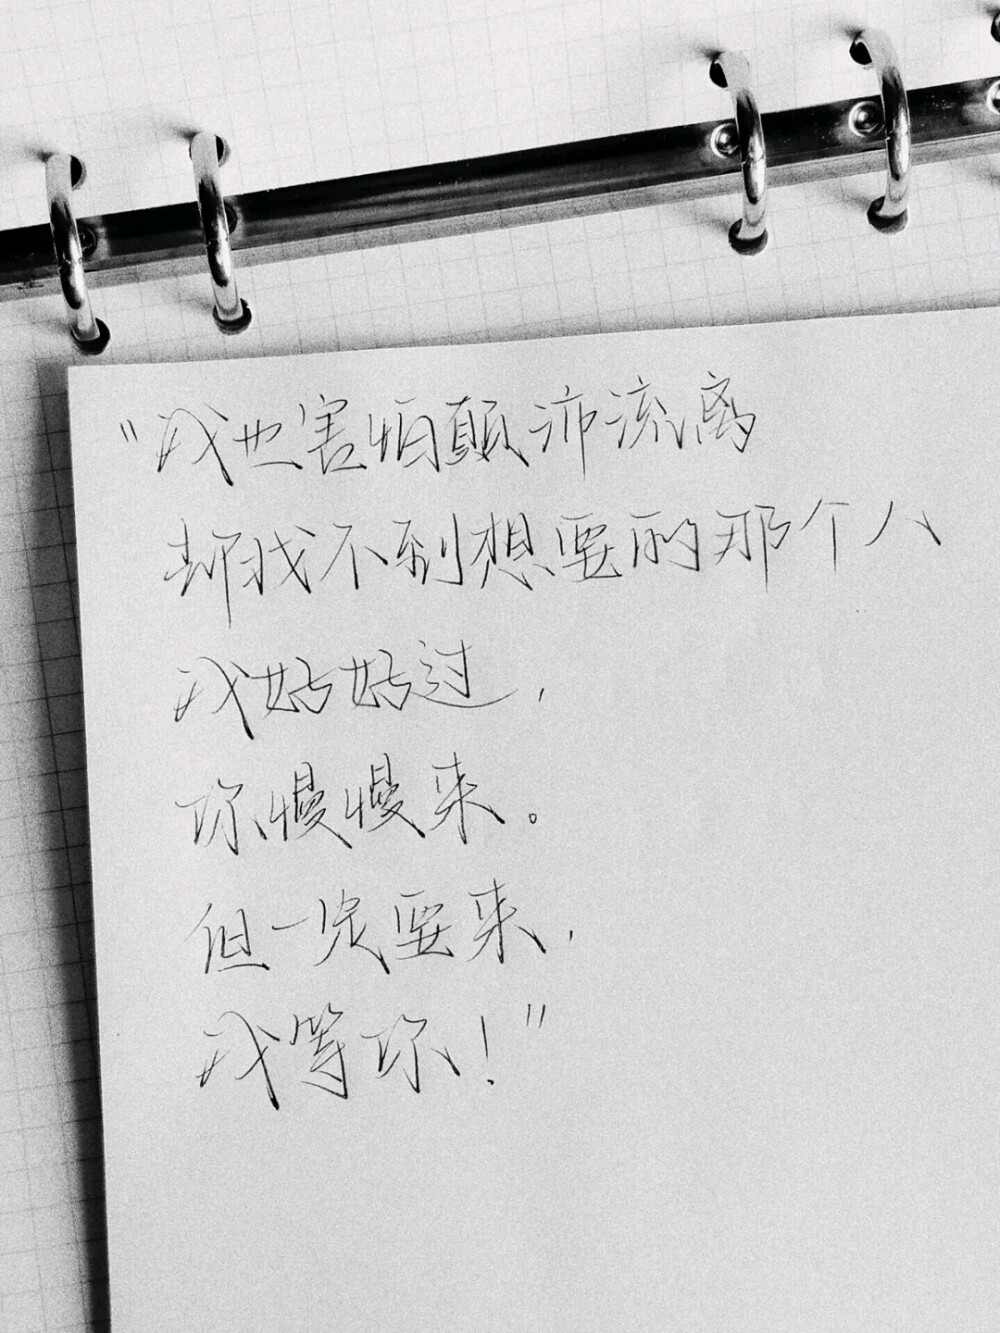 "我也害怕颠沛流离
却找不到想要的那个人
我好好过，
你慢慢来。
但一定要来，
我等你！"